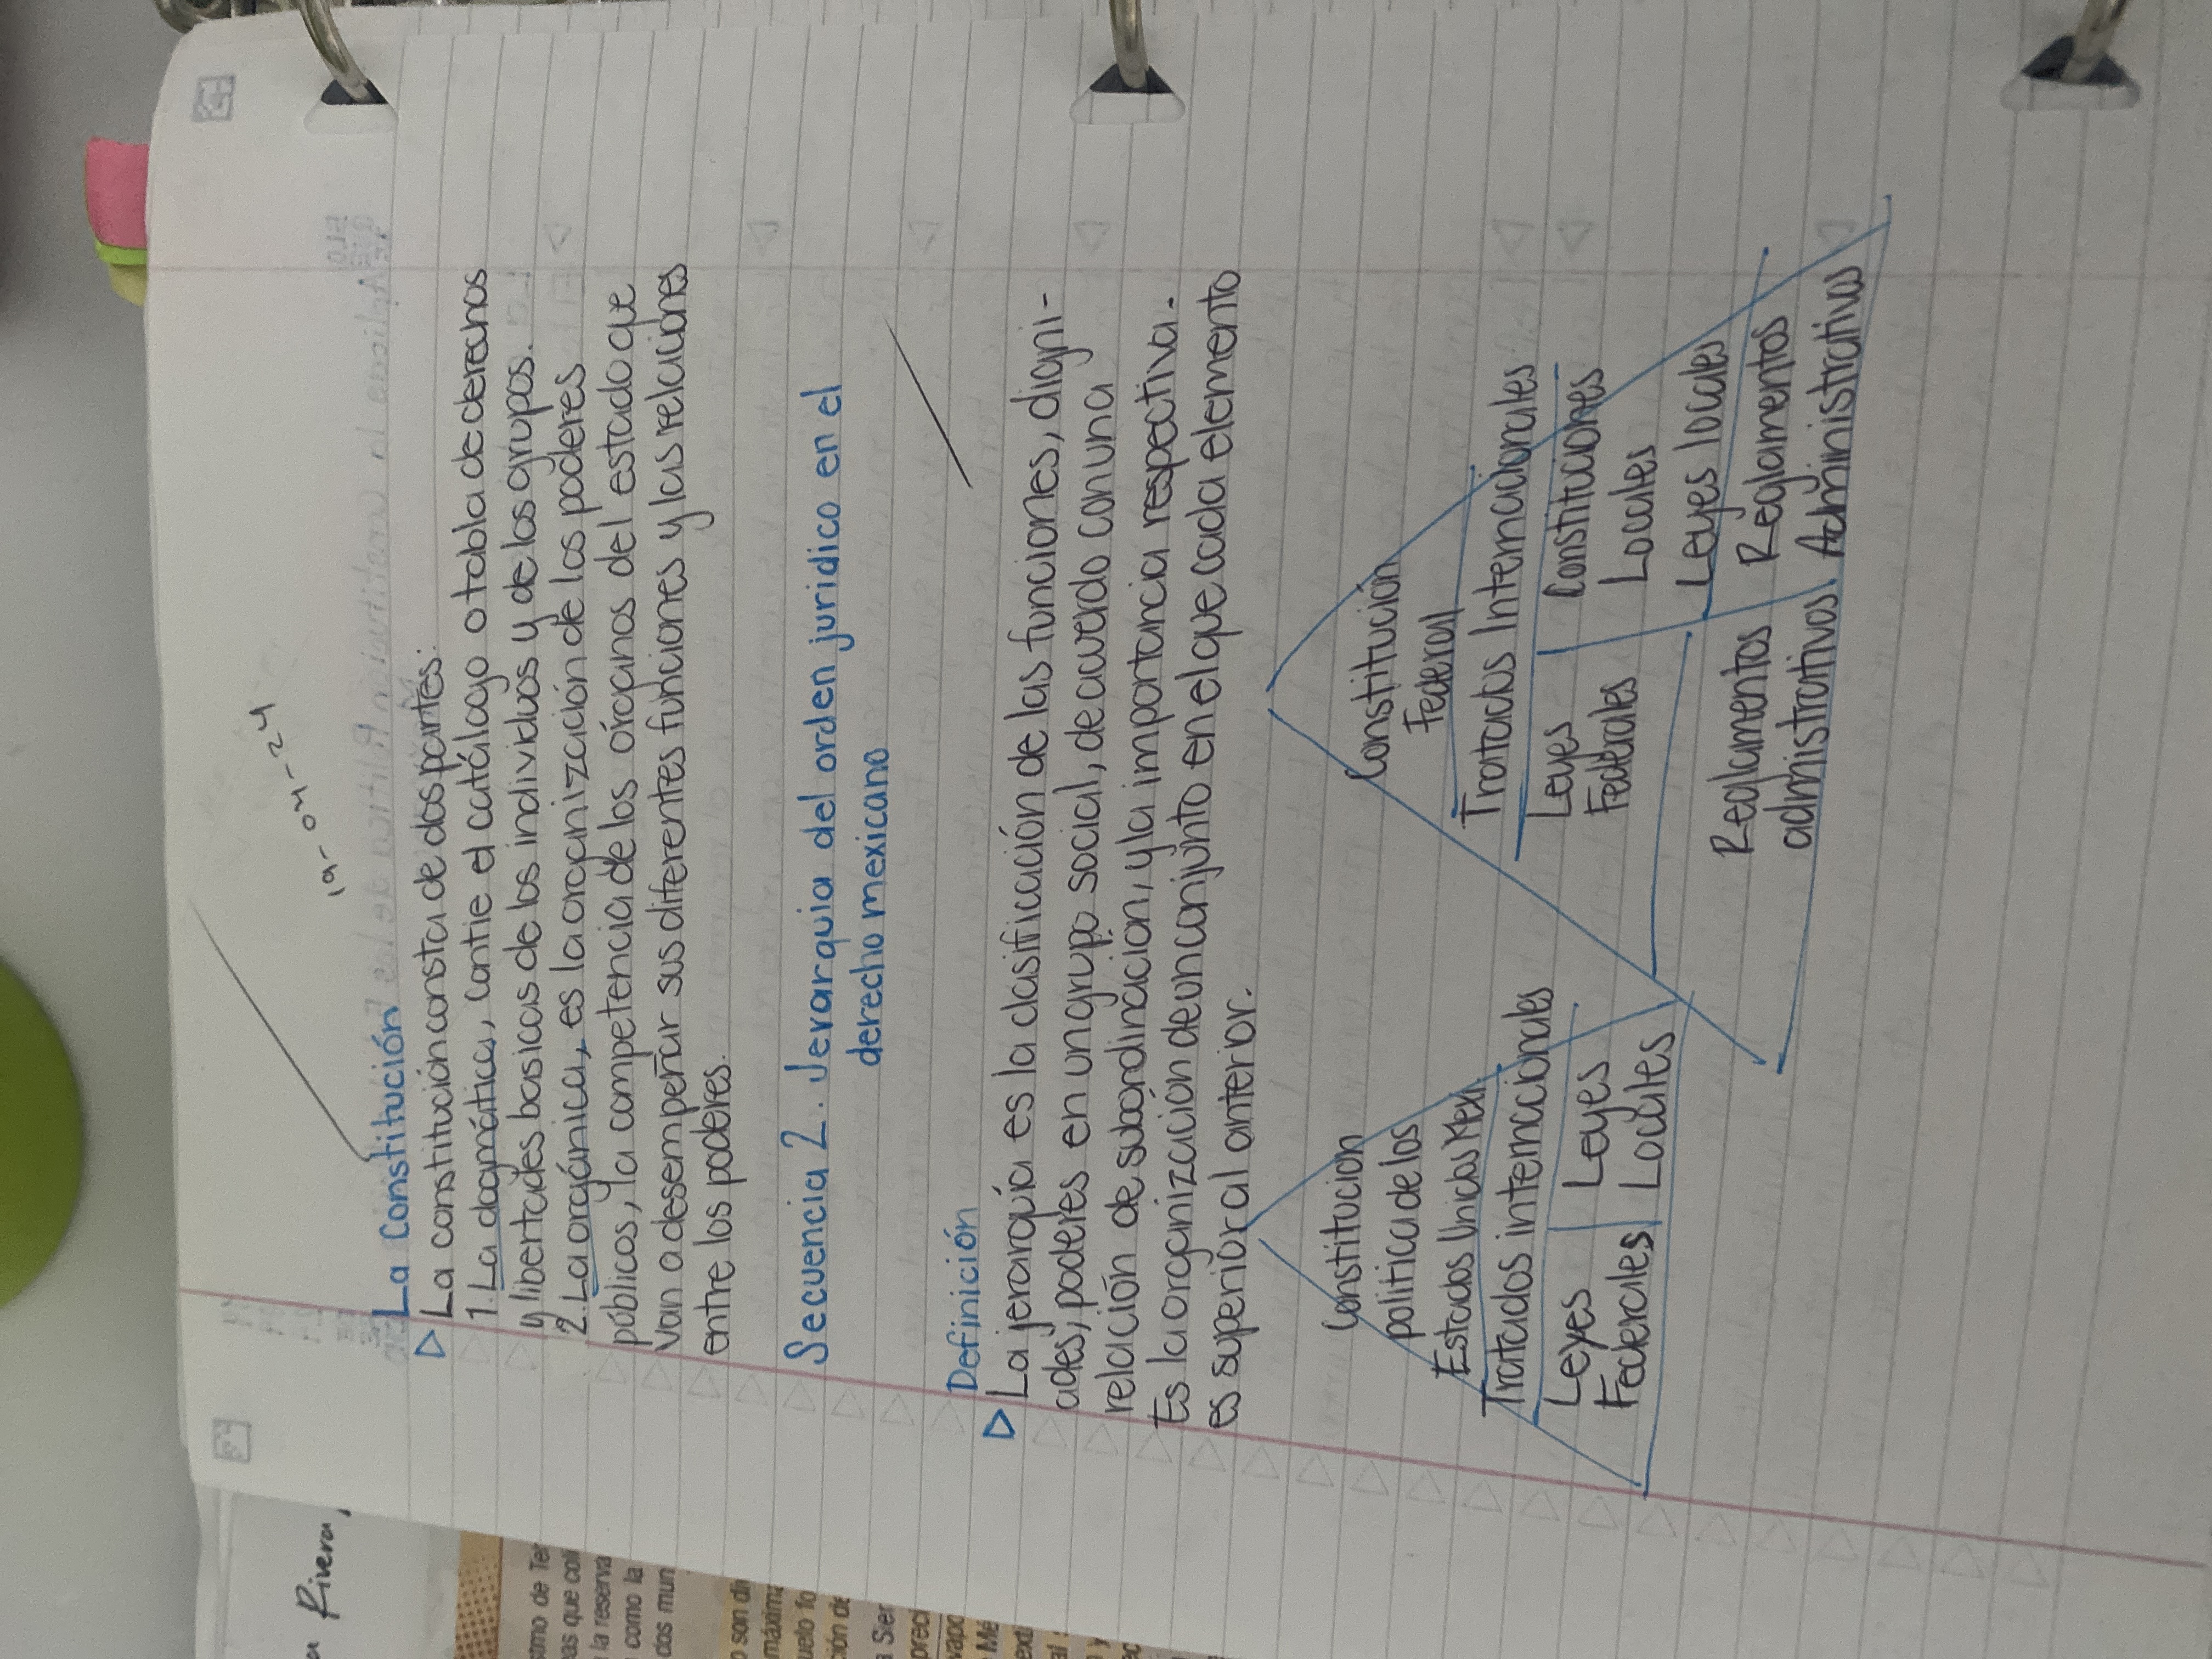 19-04-24
La Constitución
La constitución consta de dos partes:
1. La dogmática, contie el catálogo o tabla de derechos
y libertades basicas de los individuos y de los grupos.
2. La orgánica, es la organización de los poderes
públicos, la competencia de los órganos del estado que
van a desempeñar sus diferentes funciones y las relaciones
entre los poderes.
Secuencia 2. Jerarquia del orden juridico en el
derecho mexicano
Definición
La jerarquía es la clasificación de las funciones, digni-
ades, poderes en un grupo social, de acuerdo con una
relación de subordinación, y la importancia respectiva.
Es la organización de un conjunto en el que cada elemento
es superior al anterior.
Constitucion
politica de los
Estados Unidos Mexi.
Tratados internacionales
Leyes
Federales
Leyes
Locales
Constitución
Federal
Tratados Internacionales
Leyes
Federales
Constituciones
Locales
Leyes locales
Reglamentos
administrativos
Reglamentos
Administrativos
a Rivera,
stmo de Ter
as que coli
la reserva
como la
dos mun
o son di
máxima
uelo fo
ción de